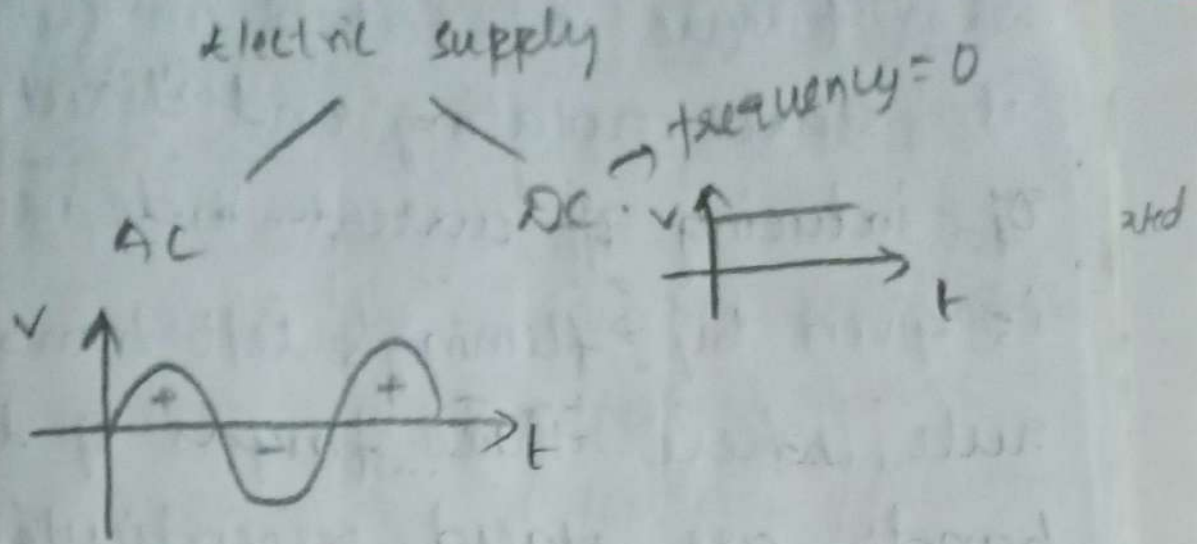 Electric supply
AC
DC → frequency = 0
V
t
V
+
-
+
t